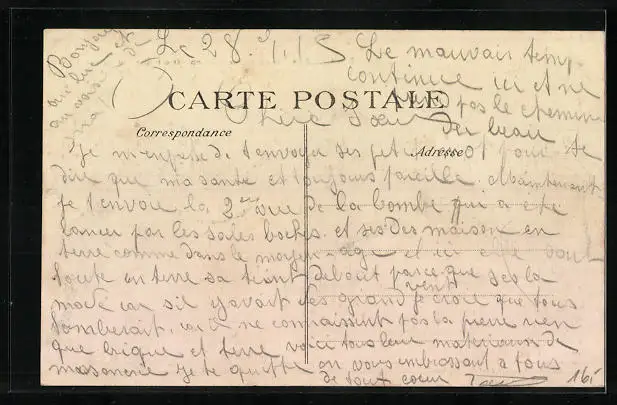 Bonjour
Le 28 Le mauvais temp
continue ici et ne
CARTE POSTALE
pas le chemin
Chère Sœur
du beau
Correspondance
Adresse
Je m'enpresse de t'envoyer ses petit mot pour te
dire que ma santé et toujours pareille. Maintenant
je t'envoie la 2eme vue de la bombe qui a été
lancer par les sales boches. et ses des maison en
terre comme dans le moyen-age et ici elle sont
toute en terre sa tient debout parce que ses la
mode car sil y avait des grand vent je crois que tous
tomberait, car il ne connaissent pas la pierre rien
que brique et terre voici tous leur materiaux de
maconerie je te quitte en vous embrassant a tous
de tout coeur